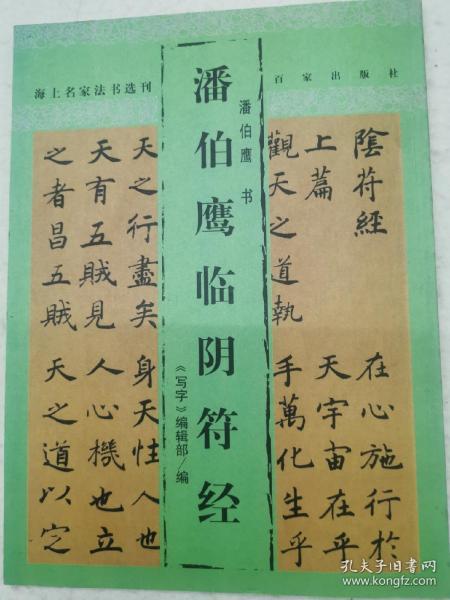 海上名家法书选刊
百家出版社
潘伯鹰临阴符经
潘伯鹰 书
《写字》编辑部/编
陰苻經
上篇
觀天之道執
在心施行於
天宇宙在乎
手萬化生乎
天之行盡矣
天有五賊見
之者昌五賊
身天性人也
人心機也立
天之道以定
孔夫子旧书网
www.kongfz.com